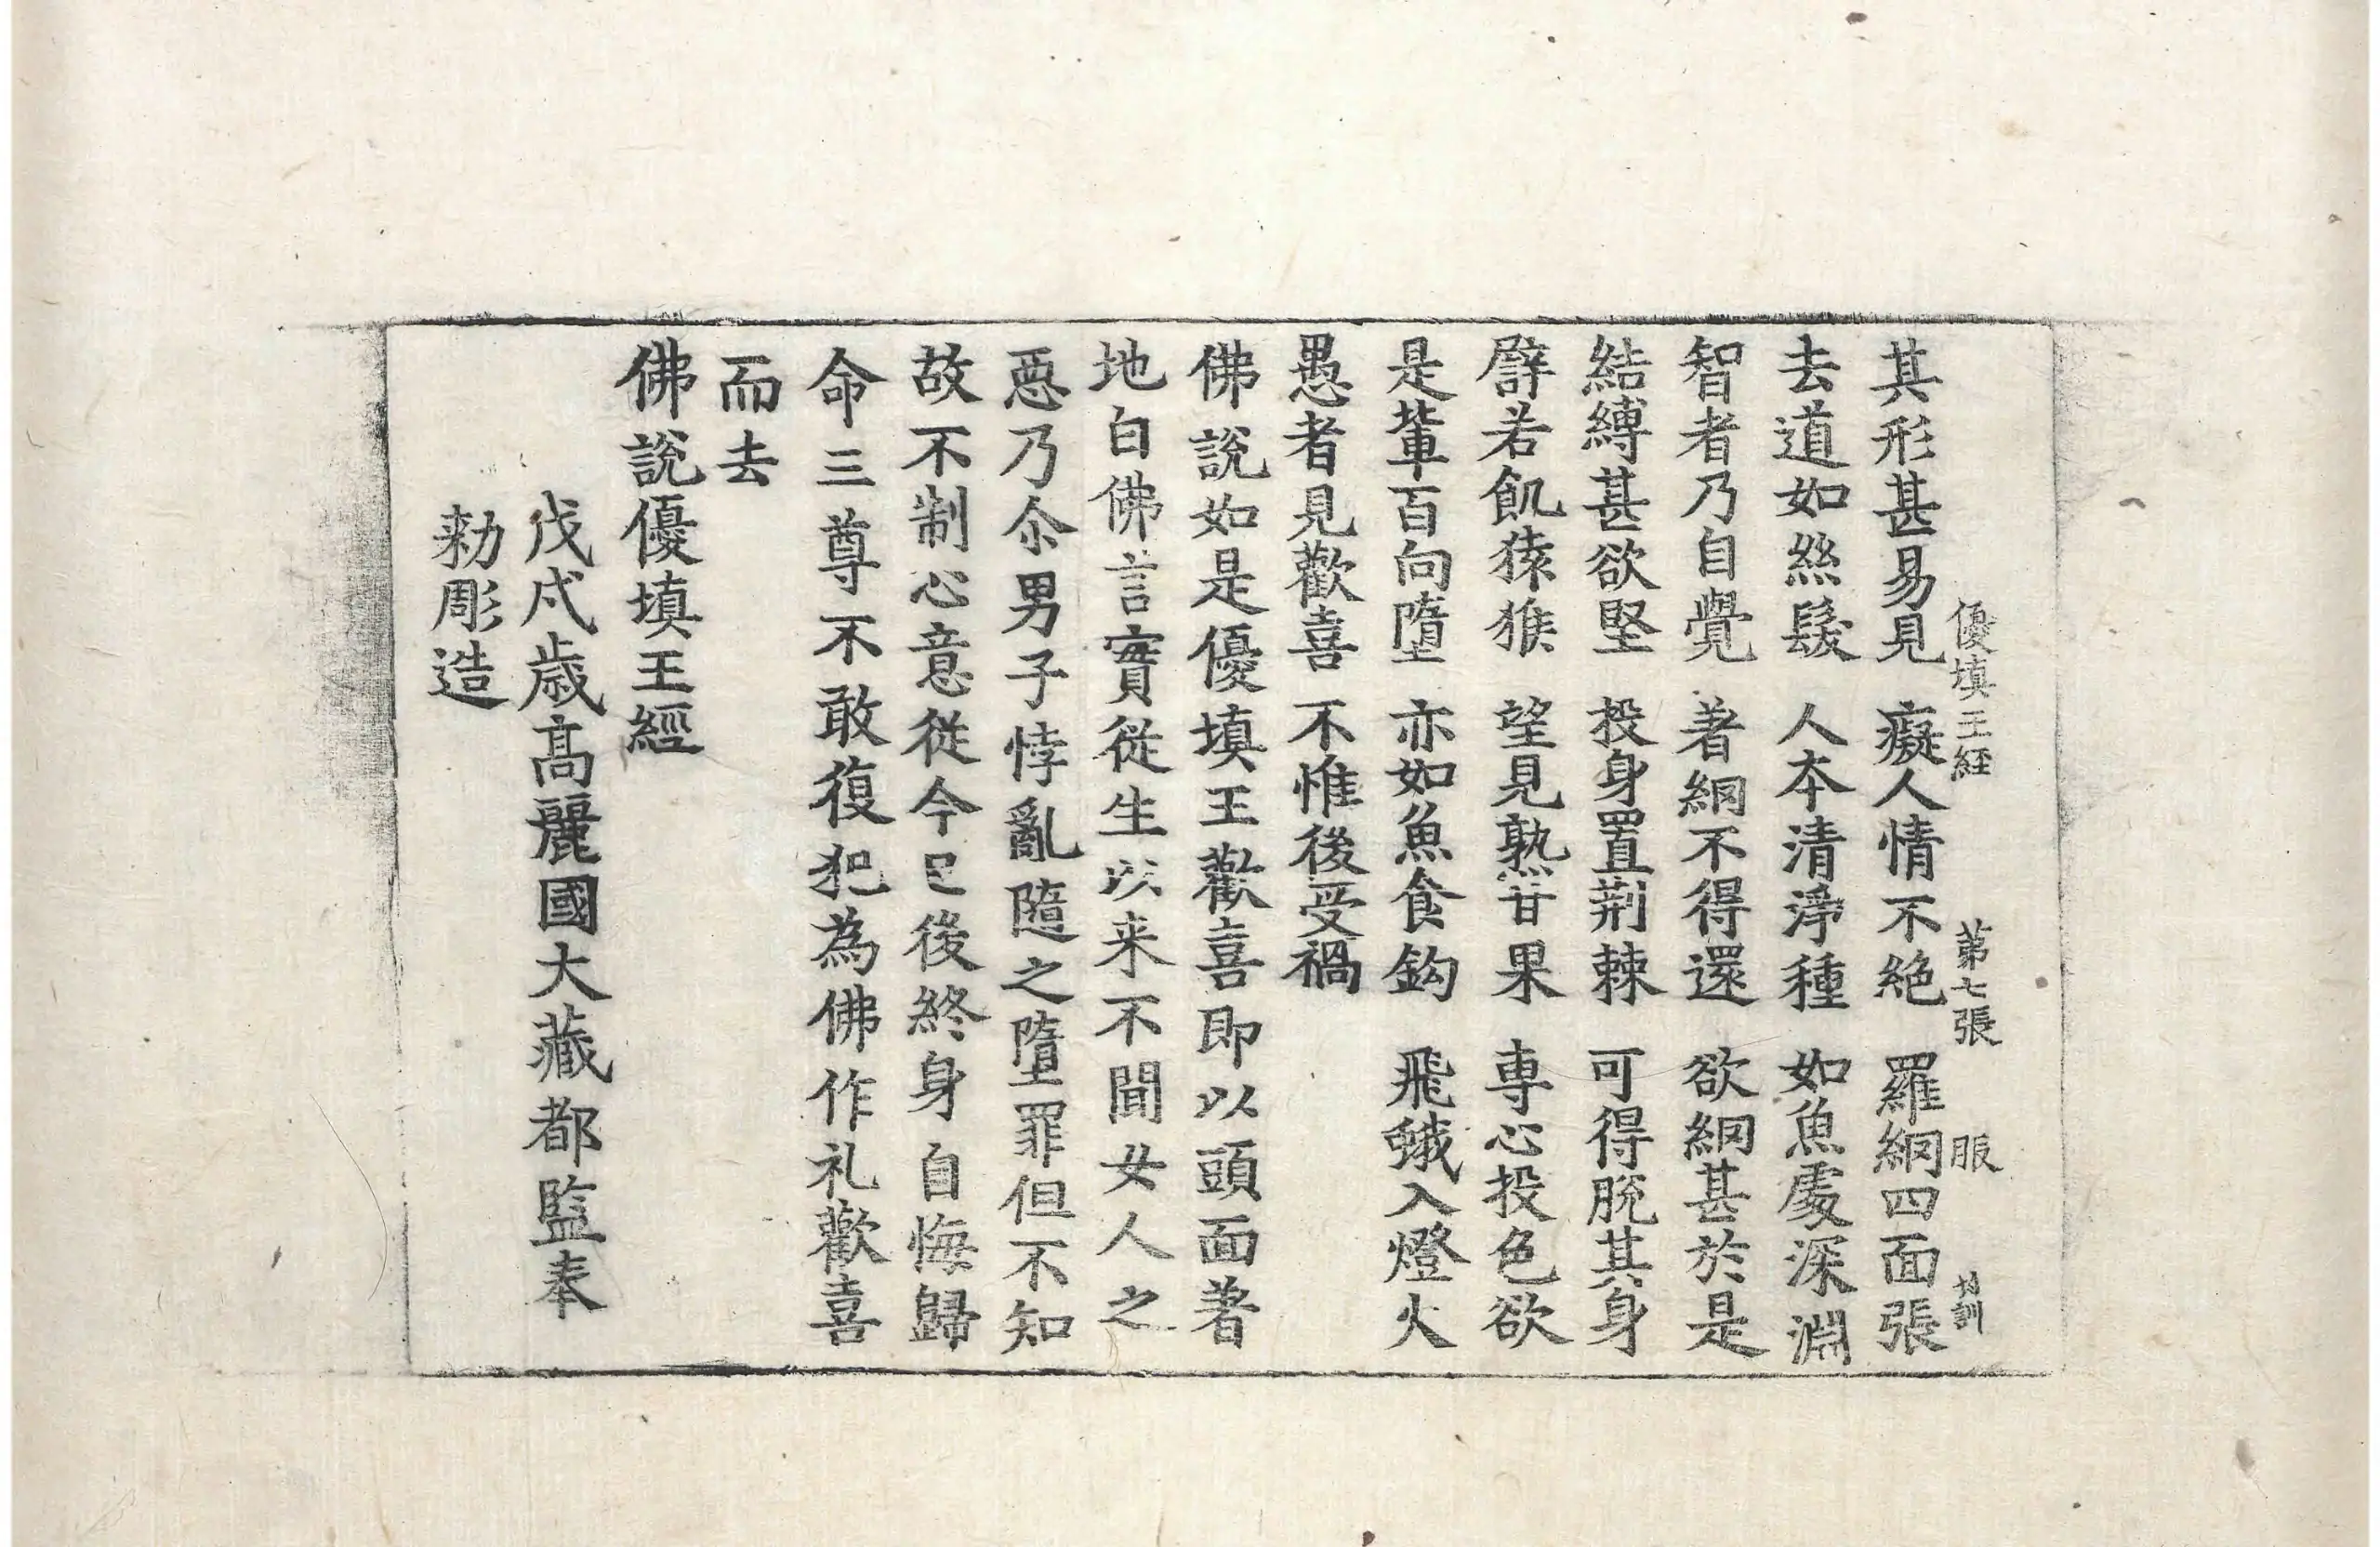 優填王經 第七張 服
其形甚易見 癡人情不絕 羅網四面張
去道如絲髮 人本清淨種 如魚處深淵
智者乃自覺 著網不得還 欲網甚於是
結縛甚欲堅 投身置荆棘 可得脫其身
譬若飢猿猴 望見熟甘果 專心投色欲
是輩百向墮 亦如魚食鈎 飛蛾入燈火
愚者見歡喜 不惟後受禍
佛說如是優填王歡喜即以頭面著
地白佛言實從生以来不聞女人之
惡乃尒男子悖亂隨之墮罪但不知
故不制心意從今已後終身自悔歸
命三尊不敢復犯為佛作礼歡喜
而去
佛說優填王經
戊戌歲高麗國大藏都監奉
勑彫造